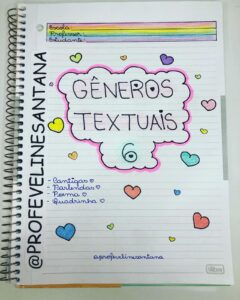 Escola
Professor
Estudante
GÊNEROS
TEXTUAIS
6
- Cantigas
- Parlendas
- Poema
- Quadrinha
@profevelinesantana
tilibra
@PROFEVELINESANTANA